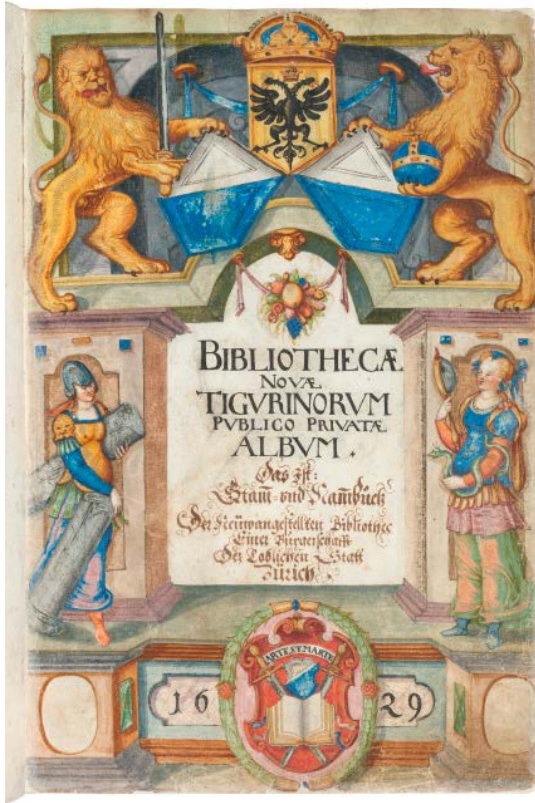 BIBLIOTHECÆ
NOVÆ
TIGVRINORVM
PVBLICO PRIVATÆ
ALBVM.
Das Ist:
Stam̄- vnd Nam̄büch
Der Neüwangestellten Bibliothec
Einer Burgerschafft
Der Loblichen Statt
Zürich.
ARTE ET MARTE
16 29